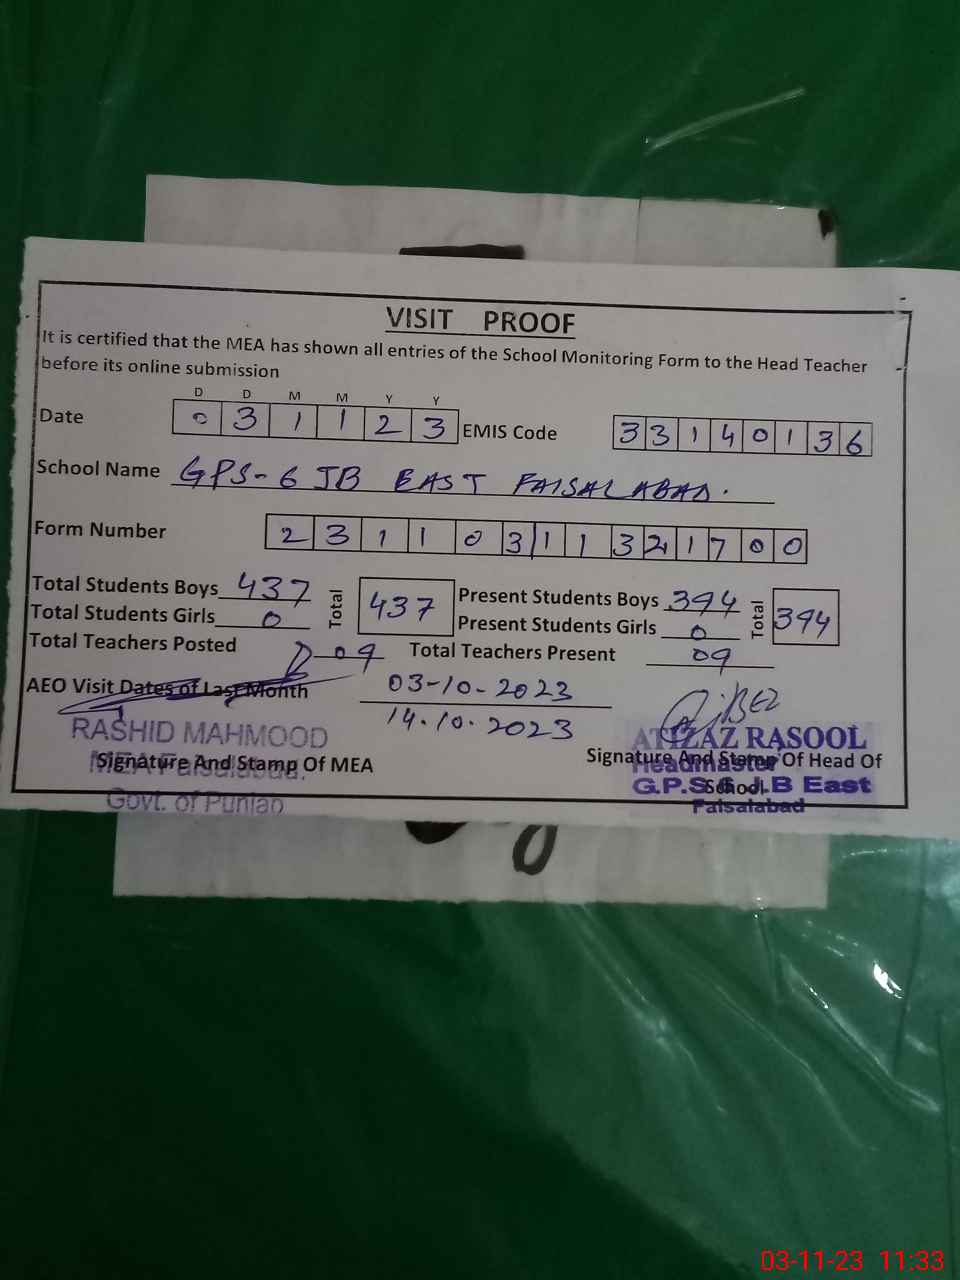 VISIT PROOF
It is certified that the MEA has shown all entries of the School Monitoring Form to the Head Teacher
before its online submission
D D M M Y Y
Date 0 3 1 1 2 3 EMIS Code 3 3 1 4 0 1 3 6
School Name GPS-6 JB EAST FAISALABAD.
Form Number 2 3 1 1 0 3 1 1 3 2 1 7 0 0
Total Students Boys 437 Total 437 Present Students Boys 394 Total 394
Total Students Girls 0 Present Students Girls 0
Total Teachers Posted 09 Total Teachers Present 09
AEO Visit Dates of Last Month 03-10-2023
14.10.2023
RASHID MAHMOOD
MEA Faisalabad.
Govt. of Punjab
Signature And Stamp Of MEA
ATIZAZ RASOOL
Headmaster
G.P.S 6 J.B East
Faisalabad
Signature And Stamp Of Head Of
School
03-11-23 11:33